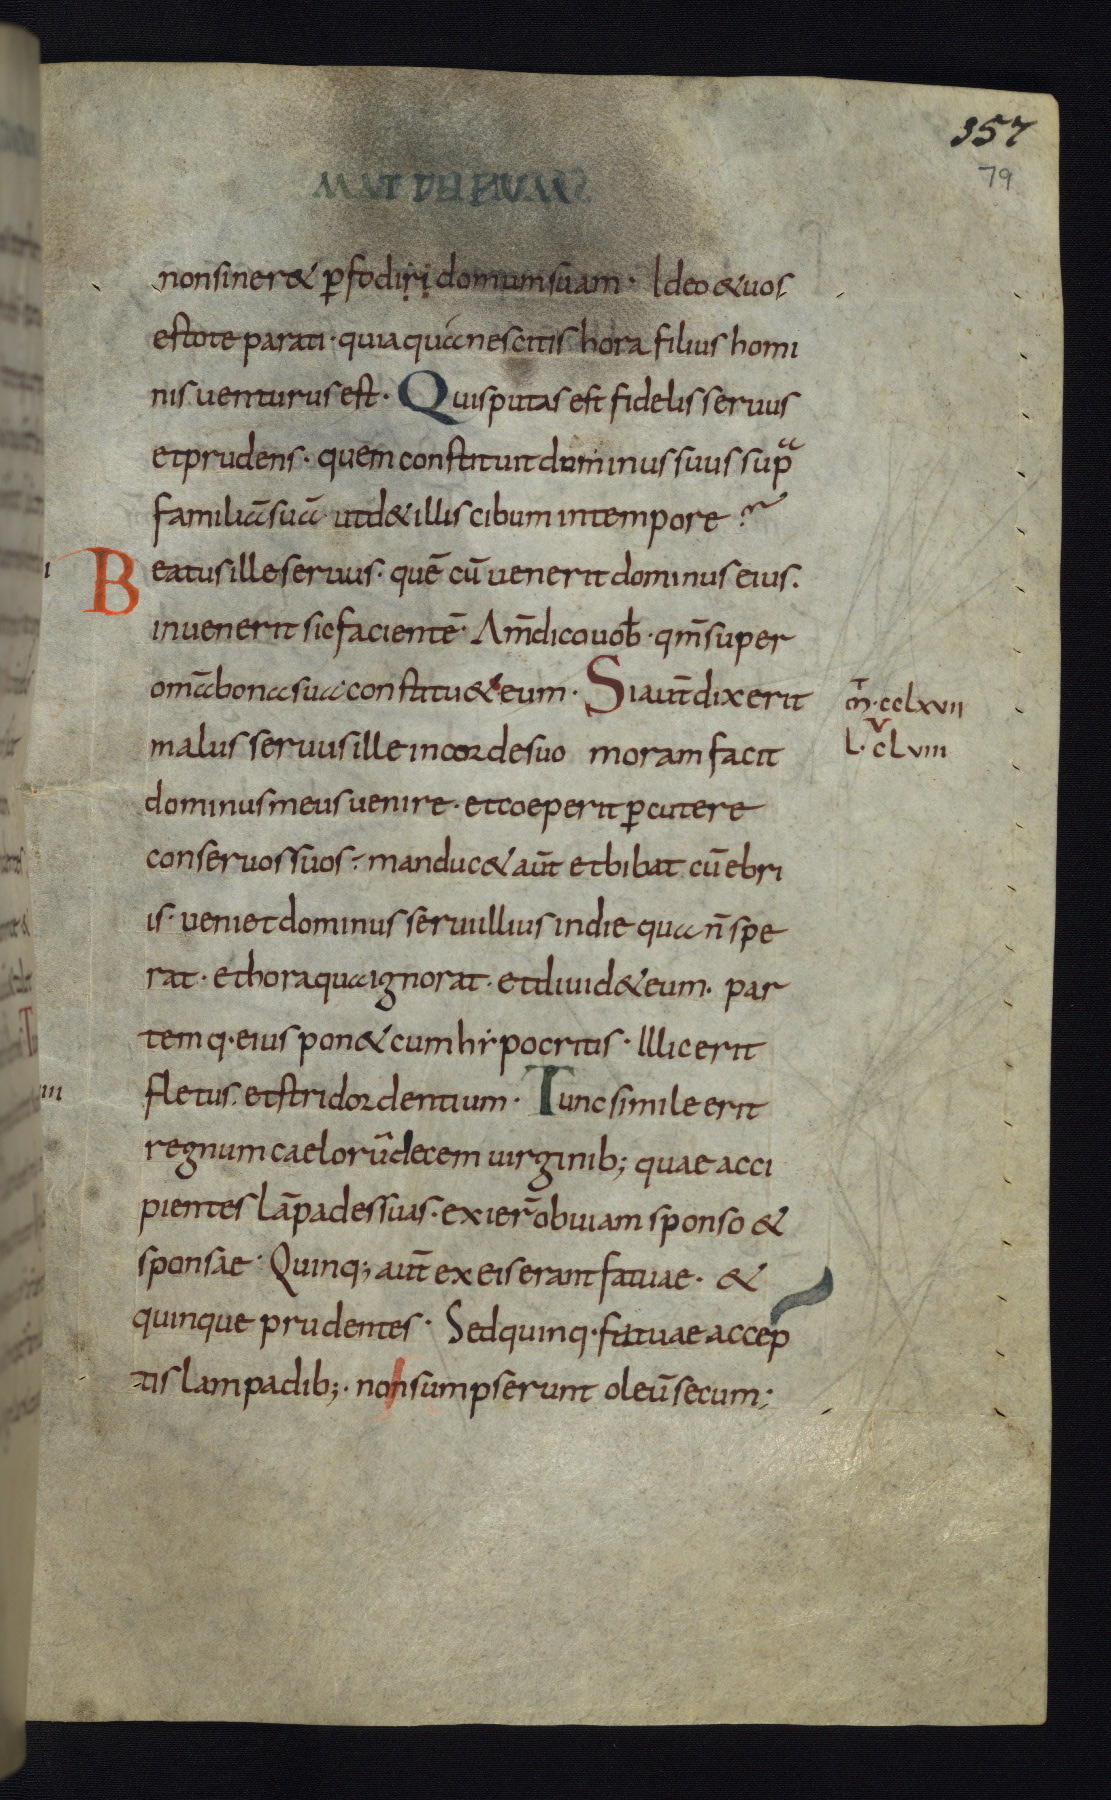 357
79
non siner& ꝑfodiri domum suam · Ideo & uos
estote parati · quia qua nescitis hora filius homi
nis uenturus est · Quis putas est fidelis seruus
et prudens · quem constituit dominus suus sup̄a
familiā suā ut d& illis cibum in tempore ·
Beatus ille seruus · quē cū uenerit dominus eius ·
inuenerit sic facientē · Am̄ dico uob̄ · qm̄ super
om̄a bona sua constitu& eum · Si aut̄ dixerit
m̄ · cclxvii
malus seruus ille in corde suo moram facit
L · clviii
v
dominus meus uenire · et coeperit ꝑcutere
conseruos suos · manduc& aut̄ et bibat cū ebri
is · ueniet dominus serui illius in die qua n̄ spe
rat · et hora qua ignorat · et diuid& eum · par
temq · eius pon& cum hẏpocritis · Illic erit
fletus · et stridor dentium · Tunc simile erit
regnum caelorū decem uirginib; quae acci
pientes lāpades suas · exier̄ obuiam sponso &
sponsae · Quinq; aut̄ ex eis erant fatuae · &
quinque prudentes · Sed quinq · fatuae accep
tis lampadib; · non sumpserunt oleū secum ;